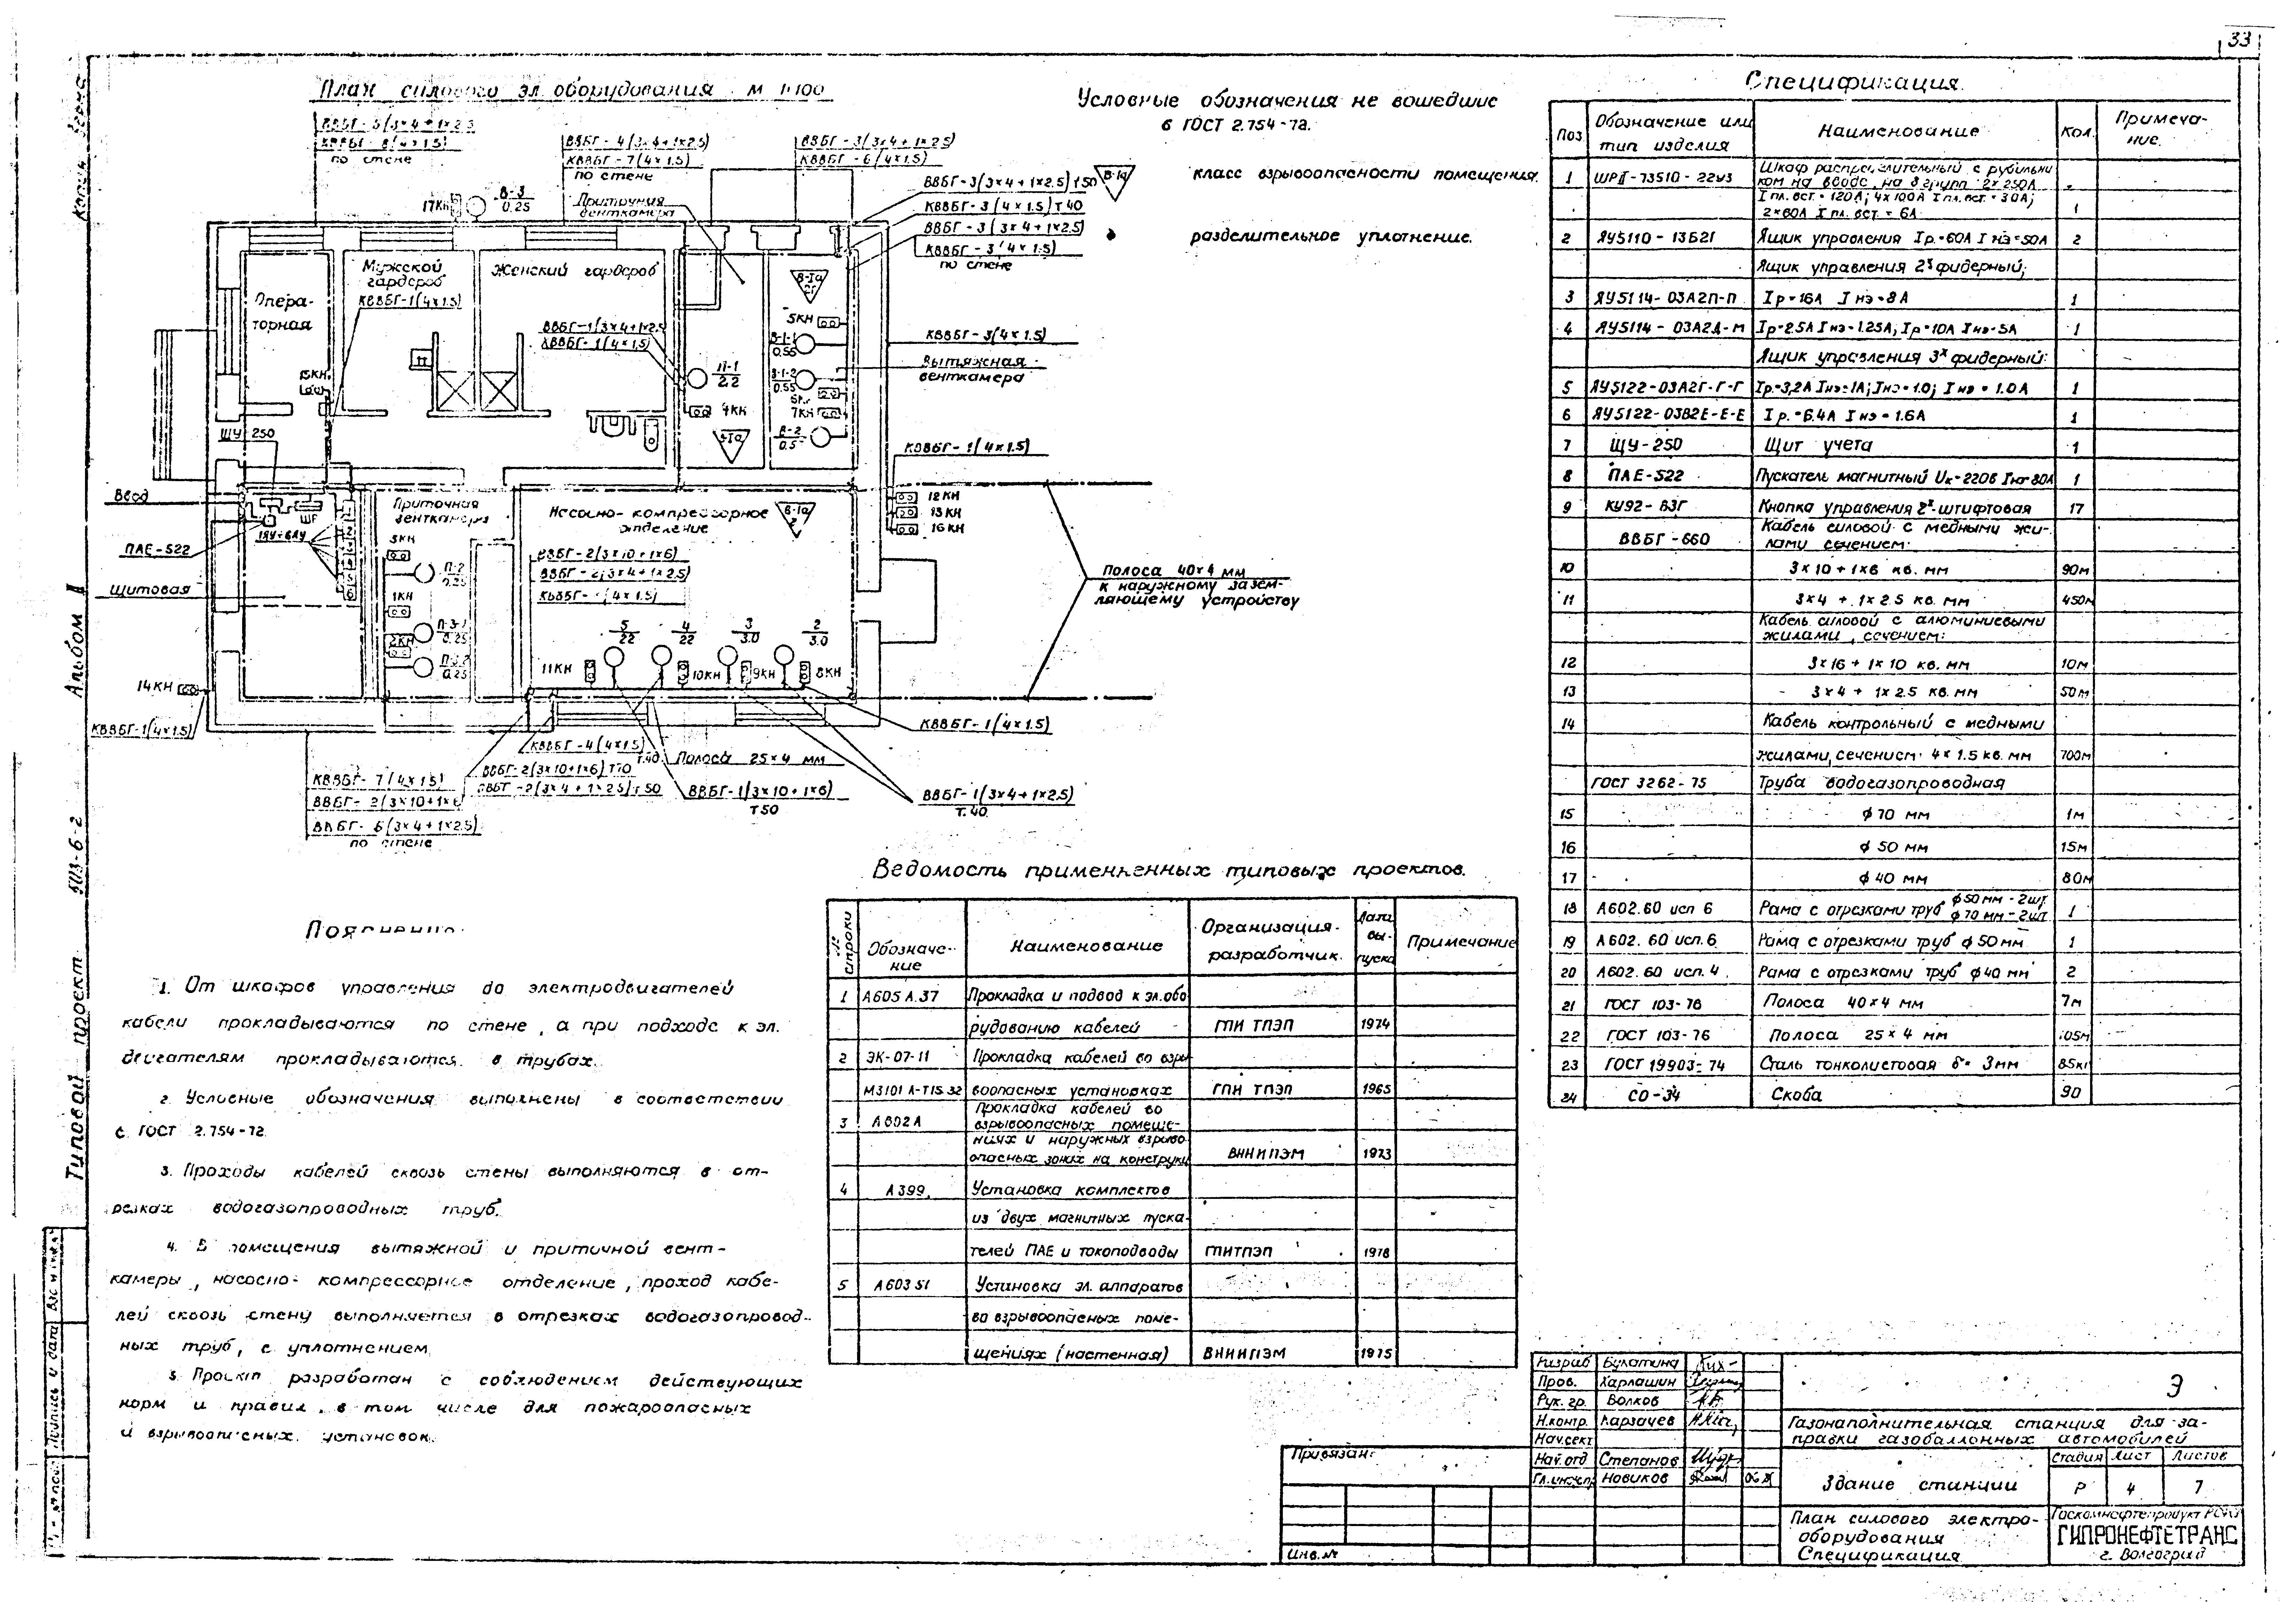 33
План силового эл. оборудования М 1:100
ВВБГ-5(3×4+1×2.5
КВВБГ-8(4×1.5)
по стене
ВВБГ-4(3×4+1×2.5)
КВВБГ-7(4×1.5)
по стене
ВВБГ-3(3×4+1×2.5)
КВВБГ-6(4×1.5)
ВВБГ-3(3×4+1×2.5) т50
КВВБГ-3(4×1.5) т40
ВВБГ-3(3×4+1×2.5)
КВВБГ-3(4×1.5)
по стене
17КН
В-3
0.25
Приточная
венткамера
Опера-
торная
Мужской
гардероб
КВВБГ-1(4×1.5)
Женский гардероб
ВВБГ-1(3×4+1×2.5
КВВБГ-1(4×1.5)
15КН
П-1
2.2
4КН
В-Iа
5КН
В-1-1
0.55
В-1-2
0.55
6КН
7КН
В-2
0.5
КВВБГ-3(4×1.5)
Вытяжная
венткамера
КВВБГ-1(4×1.5)
12КН
13КН
16КН
ЩУ-250
Ввод
ШР
1ЯУ÷6ЯУ
ПАЕ-522
Щитовая
Приточная
венткамера
3КН
П-2
0.25
1КН
П-3-1
0.25
2КН
П-3-2
0.25
14КН
КВВБГ-1(4×1.5)
Насосно-компрессорное
отделение
В-Iа
ВВБГ-2(3×10+1×6)
ВВБГ-2(3×4+1×2.5)
5
22
4
22
3
3.0
2
3.0
11КН
10КН
9КН
8КН
Полоса 40×4 мм
к наружному зазем-
ляющему устройству
КВВБГ-1(4×1.5)
КВВБГ-4(4×1.5)
т.40
Полоса 25×4 мм
ВВБГ-2(3×10+1×6) т70
ВВБГ-2(3×4+1×2.5) т50
ВВБГ-1(3×10+1×6)
т50
ВВБГ-1(3×4+1×2.5)
т.40
КВВБГ-7(4×1.5)
ВВБГ-2(3×10+1×6
ВВБГ-6(3×4+1×2.5)
по стене
Условные обозначения не вошедшие
в ГОСТ 2.754-72.
В-Iа
класс взрывоопасности помещения.
разделительное уплотнение.
Пояснения.
1. От шкафов управления до электродвигателей
кабели прокладываются по стене, а при подходе к эл.
двигателям прокладываются в трубах.
2. Условные обозначения выполнены в соответствии
с ГОСТ 2.754-72.
3. Проходы кабелей сквозь стены выполняются в от-
резках водогазопроводных труб.
4. В помещения вытяжной и приточной вент-
камеры, насосно-компрессорное отделение, проход кабе-
лей сквозь стену выполняется в отрезках водогазопровод-
ных труб, с уплотнением.
5. Проект разработан с соблюдением действующих
норм и правил, в том числе для пожароопасных
и взрывоопасных установок.
Ведомость примененных типовых проектов.
№ строки
Обозначе-
ние
Наименование
Организация-
разработчик.
Дата
вы-
пуска
Примечание
1 А605 А.37 Прокладка и подвод к эл.обо
рудованию кабелей ГПИ ТПЭП 1974
2 ЭК-07-11 Прокладка кабелей во взры
М3101 А-Т15.32 воопасных установках ГПИ ТПЭП 1965
3 А602А Прокладка кабелей во
взрывоопасных помеще-
ниях и наружных взрыво
опасных зонах на конструкц ВНИИПЭМ 1973
4 А399. Установка комплектов
из двух магнитных пуска-
телей ПАЕ и токоподводы ГПИТПЭП 1978
5 А603 51 Установка эл. аппаратов
во взрывоопасных поме-
щениях (настенная) ВНИИПЭМ 1975
Спецификация
Поз
Обозначение или
тип изделия
Наименование
Кол.
Примеча-
ние.
1 ШРII-73510-22У3 Шкаф распределительный с рубильни
ком на вводе, на 8 групп 2×250А
I пл.вст.=120А; 4×100А I пл.вст.=30А;
2×60А I пл. вст. = 6А 1
2 ЯУ5110-13Б2Г Ящик управления Iр.=60А I нэ=50А 2
Ящик управления 2х фидерный;
3 ЯУ5114-03А2П-П Iр=16А I нэ=8А 1
4 ЯУ5114-03А2Д-М Iр=2.5А Iнэ=1.25А; Iр=10А Iнэ=5А 1
Ящик управления 3х фидерный:
5 ЯУ5122-03А2Г-Г-Г Iр=3,2А Iнэ=1А; Iнэ=1.0; Iнэ=1.0А 1
6 ЯУ5122-03В2Е-Е-Е Iр.=6.4А Iнэ=1.6А 1
7 ЩУ-250 Щит учета 1
8 ПАЕ-522 Пускатель магнитный Uк=220В Iнэ=80А 1
9 КУ92-ВЗГ Кнопка управления 2х-штифтовая 17
ВВБГ-660 Кабель силовой с медными жи-
лами сечением:
10 3×10+1×6 кв. мм 90м
11 3×4 + 1×2.5 кв. мм 450м
Кабель силовой с алюминиевыми
жилами, сечением:
12 3×16+1×10 кв. мм 10м
13 3×4+ 1×2.5 кв. мм 50м
14 Кабель контрольный с медными
жилами, сечением: 4×1.5 кв. мм 700м
ГОСТ 3262-75 Труба водогазопроводная
15 ϕ 70 мм 1м
16 ϕ 50 мм 15м
17 ϕ 40 мм 80м
18 А602.60 исп 6 Рама с отрезками труб ϕ50мм-2шт ϕ70мм-2шт 1
19 А602.60 исп.6 Рама с отрезками труб ϕ50мм 1
20 А602.60 исп.4. Рама с отрезками труб ϕ40мм 2
21 ГОСТ 103-76 Полоса 40×4 мм 7м
22 ГОСТ 103-76 Полоса 25×4 мм
23 ГОСТ 19903-74 Сталь тонколистовая δ=3мм 85кг
24 СО-34 Скоба 90
Разраб Булатина
Пров. Харлашин
Рук.гр. Волков
Н.контр. Карзачев
Нач.сект
Нач.отд Степанов
Гл.инж.пр Новиков
Э
Газонаполнительная станция для за-
правки газобаллонных автомобилей
Здание станции
Стадия Лист Листов
Р 4 7
План силового электро-
оборудования
Спецификация
Госкомнефтепродукт РСФСР
ГИПРОНЕФТЕТРАНС
г. Волгоград
Привязан:
Инв.№
Типовой проект 503-6-2 Альбом II
Подпись и дата